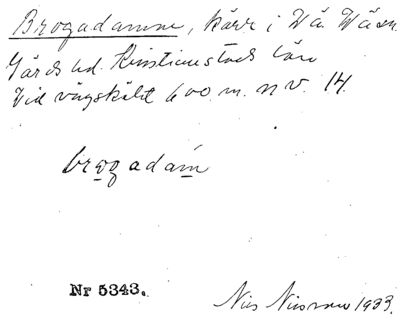 Brogadamne, kärr i Vä. Vä sn
Gärds hd. Kristianstads län
Vid vägskäl 600 m. n v. 14.
brogadam
Nr 5343.
Nils Nilsson 1933.